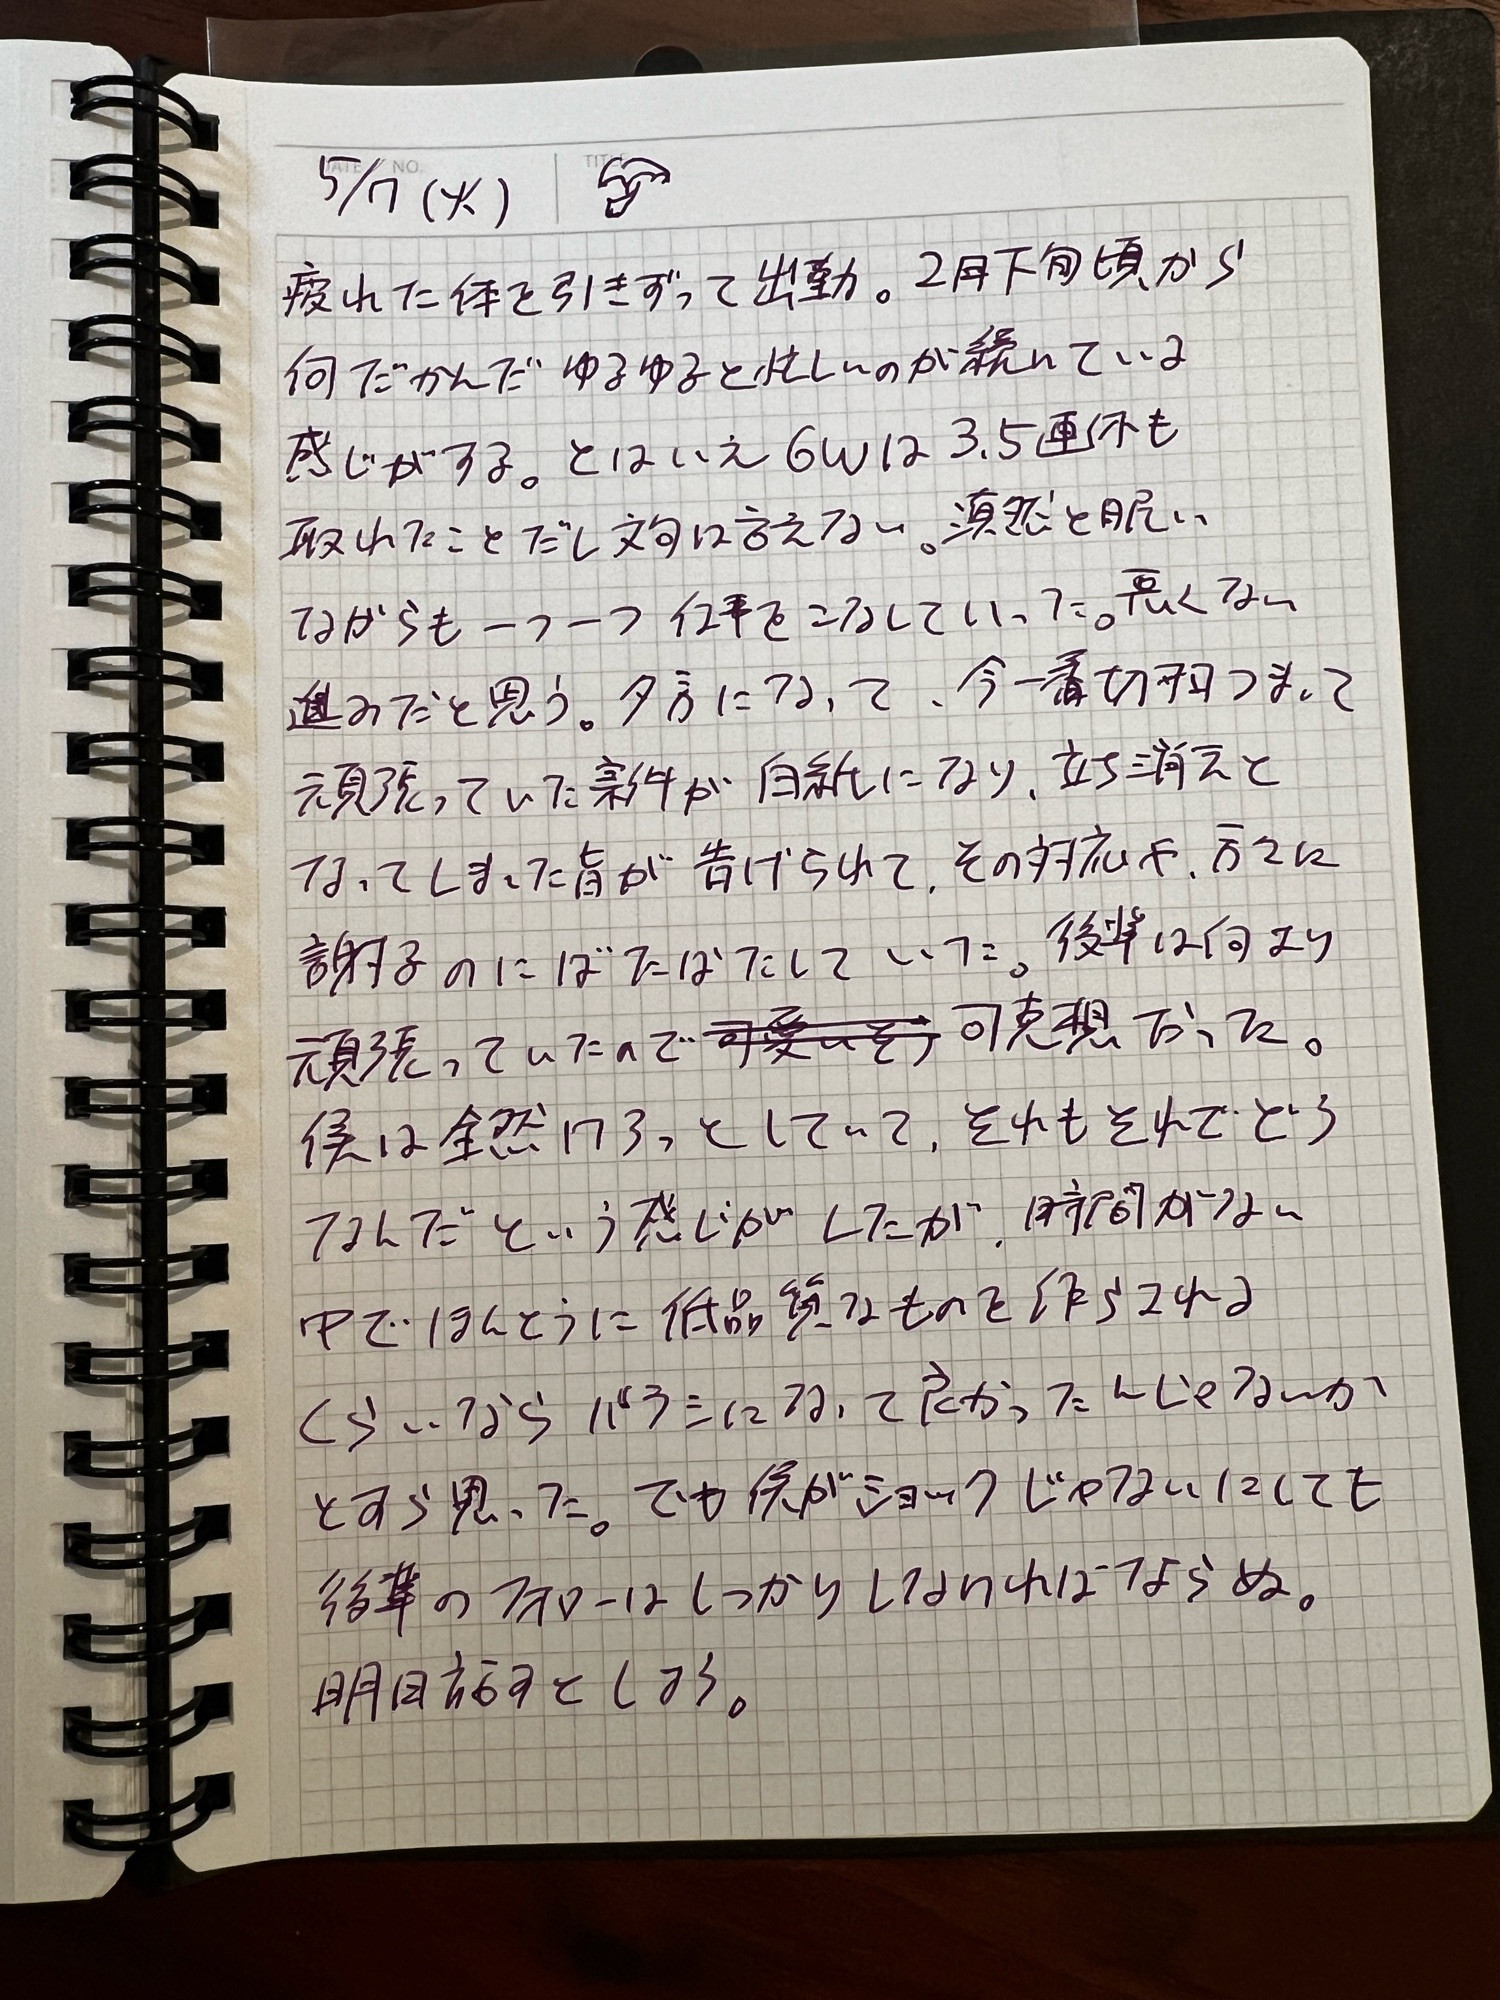 DATE / NO.
TITLE
5/7 (火)
疲れた体を引きずって出勤。2月下旬頃から
何だかんだゆるゆると忙しいのが続いている
感じがする。とはいえGWは3.5連休も
取れたことだし文句は言えない。漠然と眠い
ながらも一つ一つ仕事をこなしていった。悪くない
進みだと思う。夕方になって、今一番切羽つまって
頑張っていた案件が白紙になり、立ち消えと
なってしまった旨が告げられて、その対応や、方々に
謝るのにばたばたしていた。後輩は何より
頑張っていたので可愛いそう可克想だった。
僕は全然けろっとしていて、それもそれでどう
なんだという感じがしたが、時間がない
中でほんとうに低品質なものを作らされる
くらいならバラシになって良かったんじゃないか
とすら思った。でも僕がショックじゃないにしても
後輩のフォローはしっかりしなければならぬ。
明日話すとしよう。